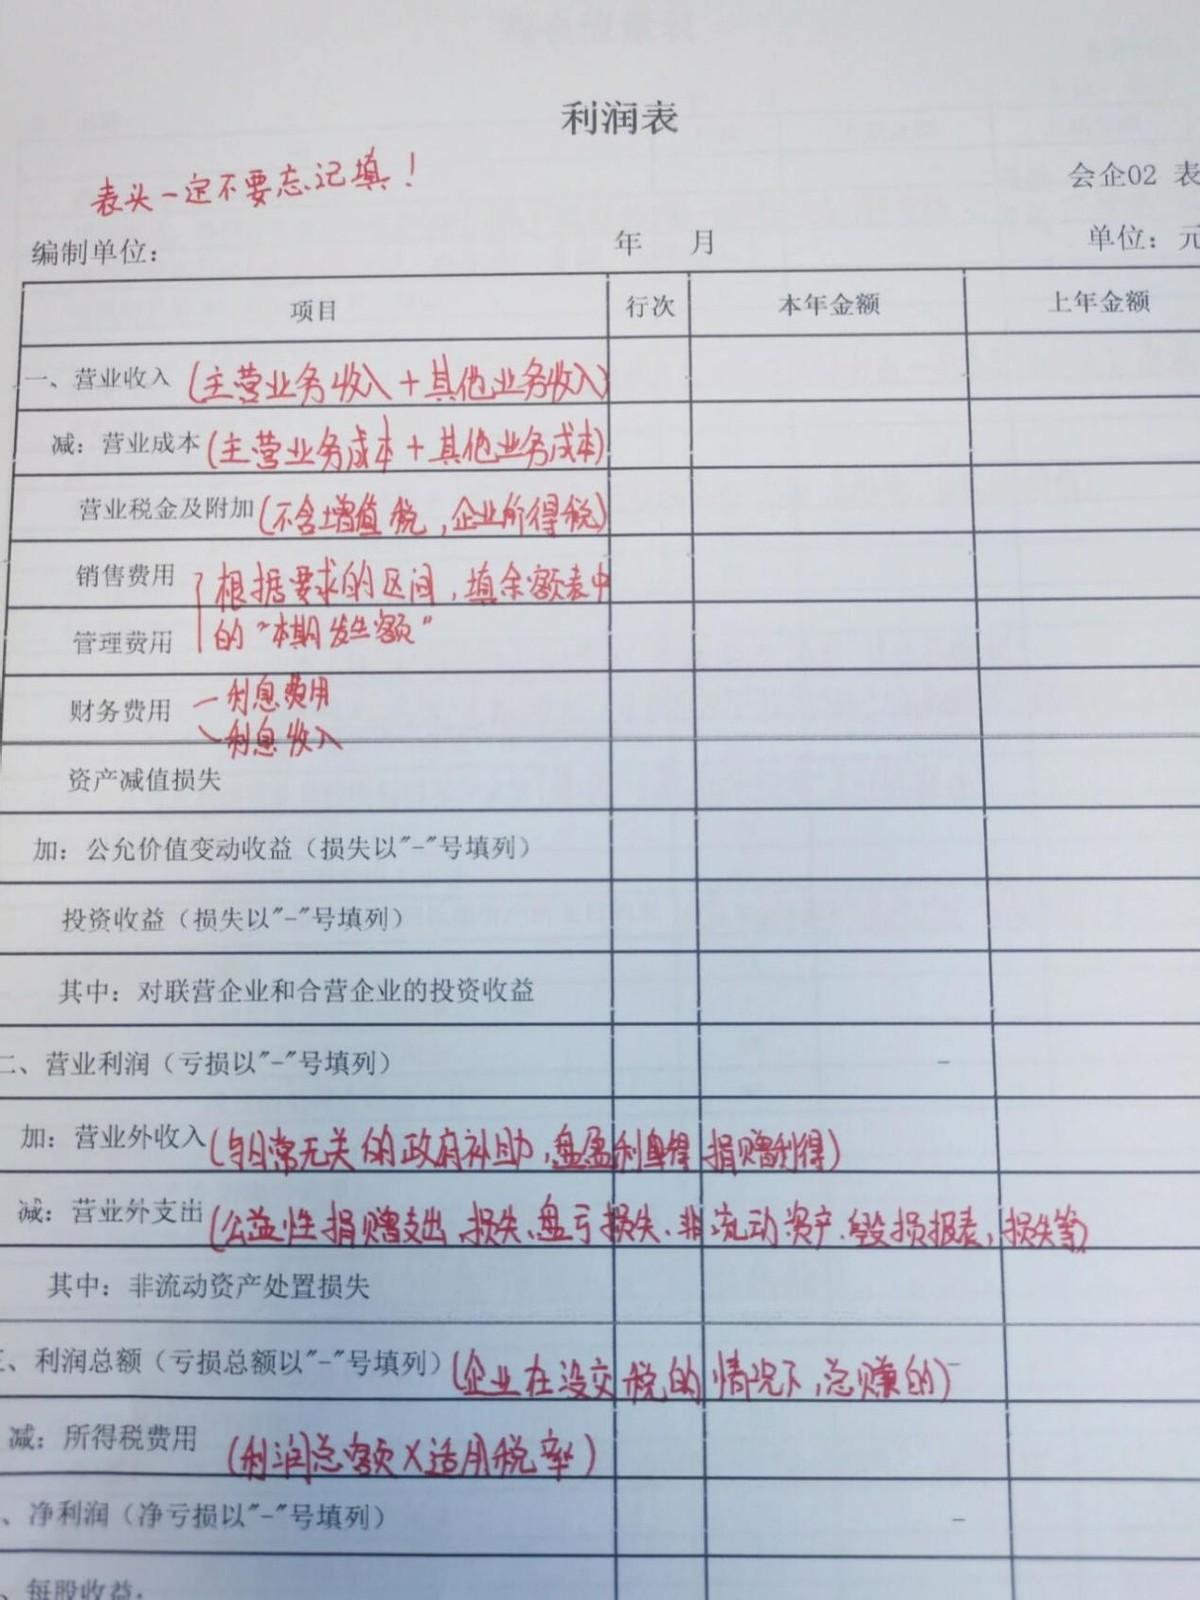 利润表
表头一定不要忘记填！
会企02 表
编制单位： 年 月 单位：元
项目 行次 本年金额 上年金额
一、营业收入 (主营业务收入 + 其他业务收入)
减：营业成本 (主营业务成本 + 其他业务成本)
营业税金及附加 (不含增值税，企业所得税)
销售费用 根据要求的区间，填余额表中
管理费用 的“本期发生额”
财务费用 利息费用
利息收入
资产减值损失
加：公允价值变动收益（损失以"-"号填列）
投资收益（损失以"-"号填列）
其中：对联营企业和合营企业的投资收益
二、营业利润（亏损以"-"号填列） -
加：营业外收入 (与日常无关的政府补助，盘盈利得 捐赠利得)
减：营业外支出 (公益性捐赠支出、损失、盘亏损失、非流动资产、毁损报表，损失等)
其中：非流动资产处置损失
三、利润总额（亏损总额以"-"号填列） (企业在没交税的情况下，总赚的) -
减：所得税费用 (利润总额×适用税率)
、净利润（净亏损以"-"号填列） -
、每股收益：